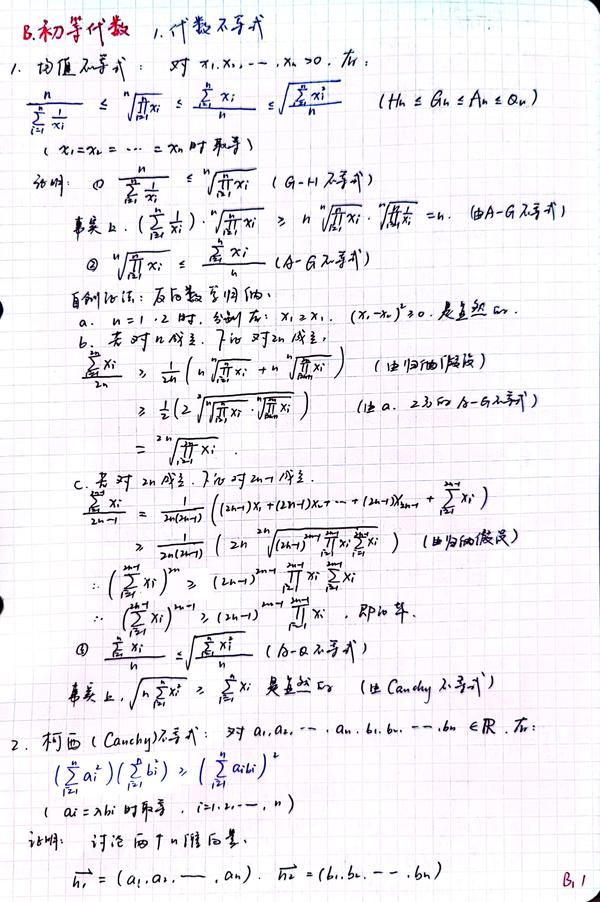 B. 初等代数 1. 代数不等式
1. 均值不等式: 对 x₁, x₂, ---, xₙ >0. 有:
n/(∑_{i=1}^{n} 1/xᵢ) ≤ ⁿ√(∏_{i=1}^{n} xᵢ) ≤ (∑_{i=1}^{n} xᵢ)/n ≤ √((∑_{i=1}^{n} xᵢ²)/n) (Hn ≤ Gn ≤ An ≤ Qn)
(x₁=x₂= --- =xₙ 时取等)
证明: ① n/(∑_{i=1}^{n} 1/xᵢ) ≤ ⁿ√(∏_{i=1}^{n} xᵢ) (G-H不等式)
事实上, (∑_{i=1}^{n} 1/xᵢ)·ⁿ√(∏_{i=1}^{n} xᵢ) ≥ n ⁿ√(∏_{i=1}^{n} xᵢ)·ⁿ√(∏_{i=1}^{n} 1/xᵢ) =n. (由A-G不等式)
② ⁿ√(∏_{i=1}^{n} xᵢ) ≤ (∑_{i=1}^{n} xᵢ)/n (A-G不等式)
证法: 反向数学归纳.
a. n=1, 2 时, 分别有: x₁≥x₁, (x₁-x₂)²≥0. 是显然的.
b. 若对n成立, 下证对2n成立.
(∑_{i=1}^{2n} xᵢ)/2n ≥ 1/2n (n ⁿ√(∏_{i=1}^{n} xᵢ) + n ⁿ√(∏_{i=n+1}^{2n} xᵢ)) (由归纳假设)
≥ 1/2 (2 √(ⁿ√(∏_{i=1}^{n} xᵢ)·ⁿ√(∏_{i=n+1}^{2n} xᵢ))) (由a. 2元的A-G不等式)
= ²ⁿ√(∏_{i=1}^{2n} xᵢ).
c. 若对2n成立, 下证对2n-1成立.
(∑_{i=1}^{2n-1} xᵢ)/(2n-1) = 1/(2n(2n-1)) ((2n-1)x₁+(2n-1)x₂+---+(2n-1)x_{2n-1} + ∑_{i=1}^{2n-1} xᵢ)
≥ 1/(2n(2n-1)) (2n ²ⁿ√((2n-1)^{2n-1} ∏_{i=1}^{2n-1} xᵢ ∑_{i=1}^{2n-1} xᵢ)) (由归纳假设)
∴ (∑_{i=1}^{2n-1} xᵢ)^{2n} ≥ (2n-1)^{2n-1} ∏_{i=1}^{2n-1} xᵢ ∑_{i=1}^{2n-1} xᵢ
∴ (∑_{i=1}^{2n-1} xᵢ)^{2n-1} ≥ (2n-1)^{2n-1} ∏_{i=1}^{2n-1} xᵢ, 即证毕.
③ (∑_{i=1}^{n} xᵢ)/n ≤ √((∑_{i=1}^{n} xᵢ²)/n) (A-Q不等式)
事实上, √(n∑_{i=1}^{n} xᵢ²) ≥ ∑_{i=1}^{n} xᵢ 是显然的 (由Cauchy不等式)
2. 柯西(Cauchy)不等式: 对 a₁, a₂, ---, aₙ, b₁, b₂, ---, bₙ ∈ℝ, 有:
(∑_{i=1}^{n} aᵢ²)(∑_{i=1}^{n} bᵢ²) ≥ (∑_{i=1}^{n} aᵢbᵢ)²
(aᵢ=λbᵢ 时取等, i=1,2,---,n)
证明: 讨论两个n维向量.
n₁ = (a₁, a₂, ---, aₙ). n₂ = (b₁, b₂, ---, bₙ)
B, 1